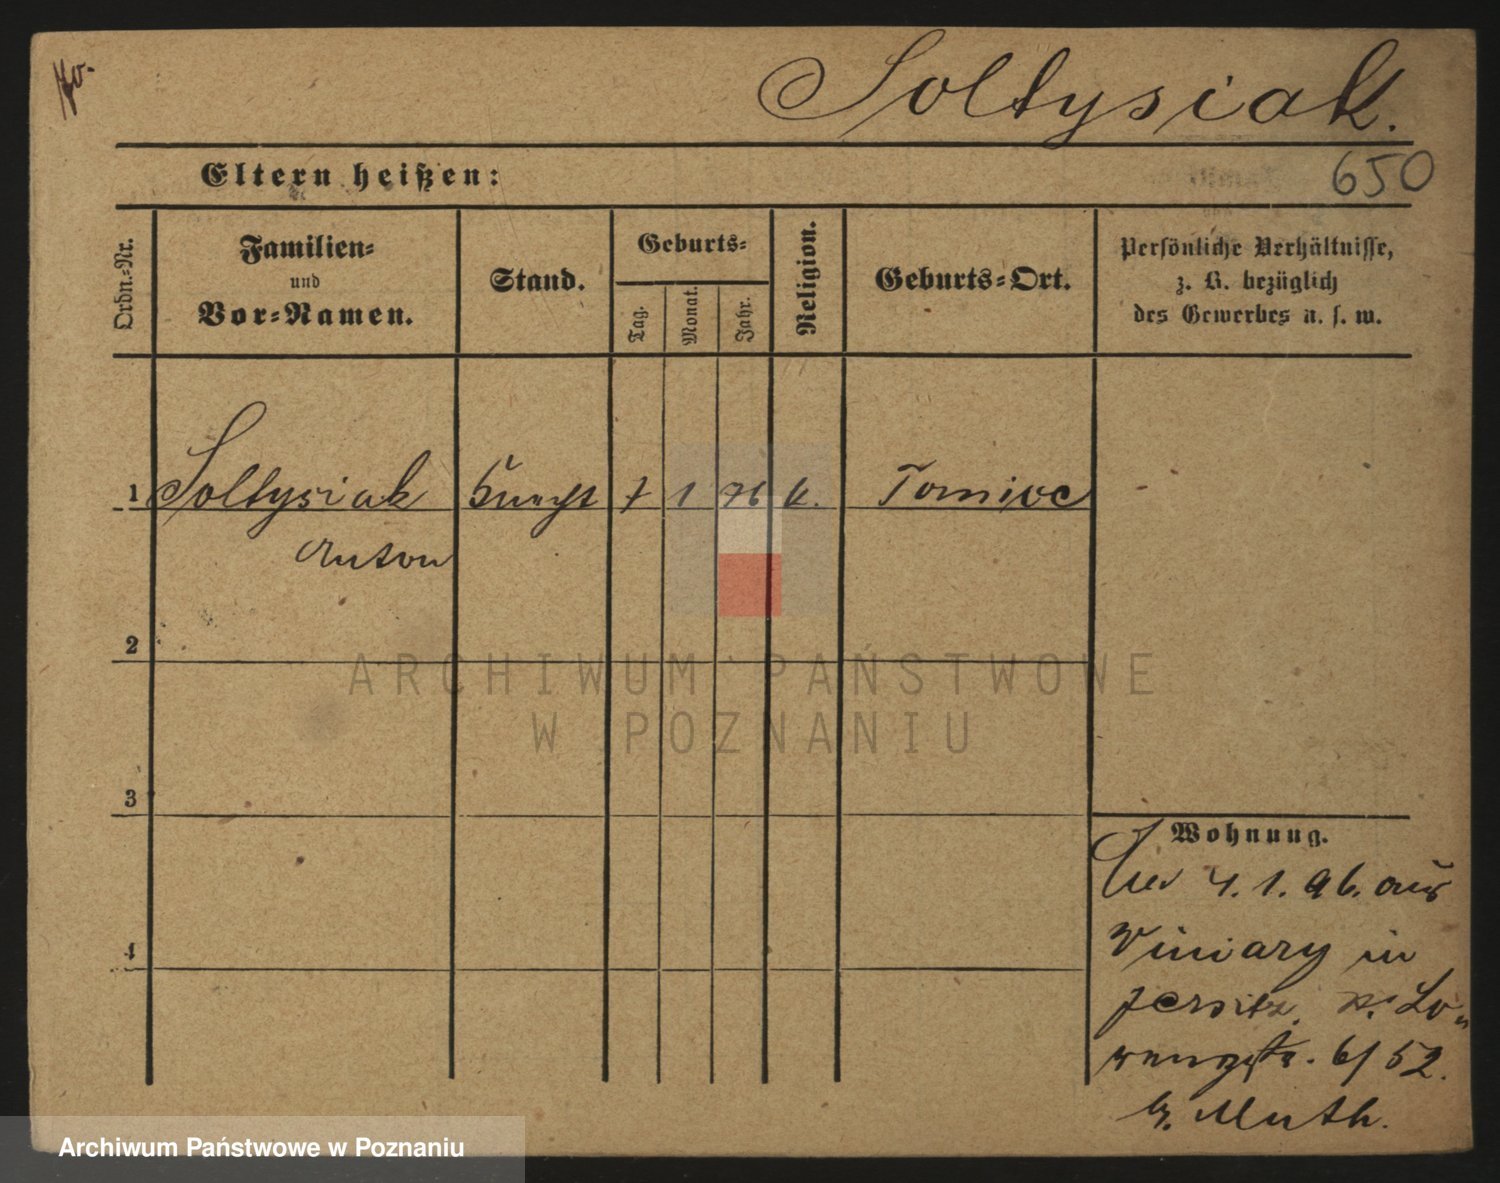 Soltysiak.
650
Eltern heißen:
Ordn.-Nr.
Familien-
und
Vor-Namen.
Stand.
Geburts-
Tag.
Monat.
Jahr.
Religion.
Geburts-Ort.
Persönliche Verhältnisse,
z. B. bezüglich
des Gewerbes u. s. w.
1 Soltysiak Knecht 7 1 76 k. Tomice
Anton
2
3
4
Wohnung.
4. 1. 96. aus
Winiary in
Jersitz.
6/52.
b. Muth.
ARCHIWUM PAŃSTWOWE
W POZNANIU
Archiwum Państwowe w Poznaniu